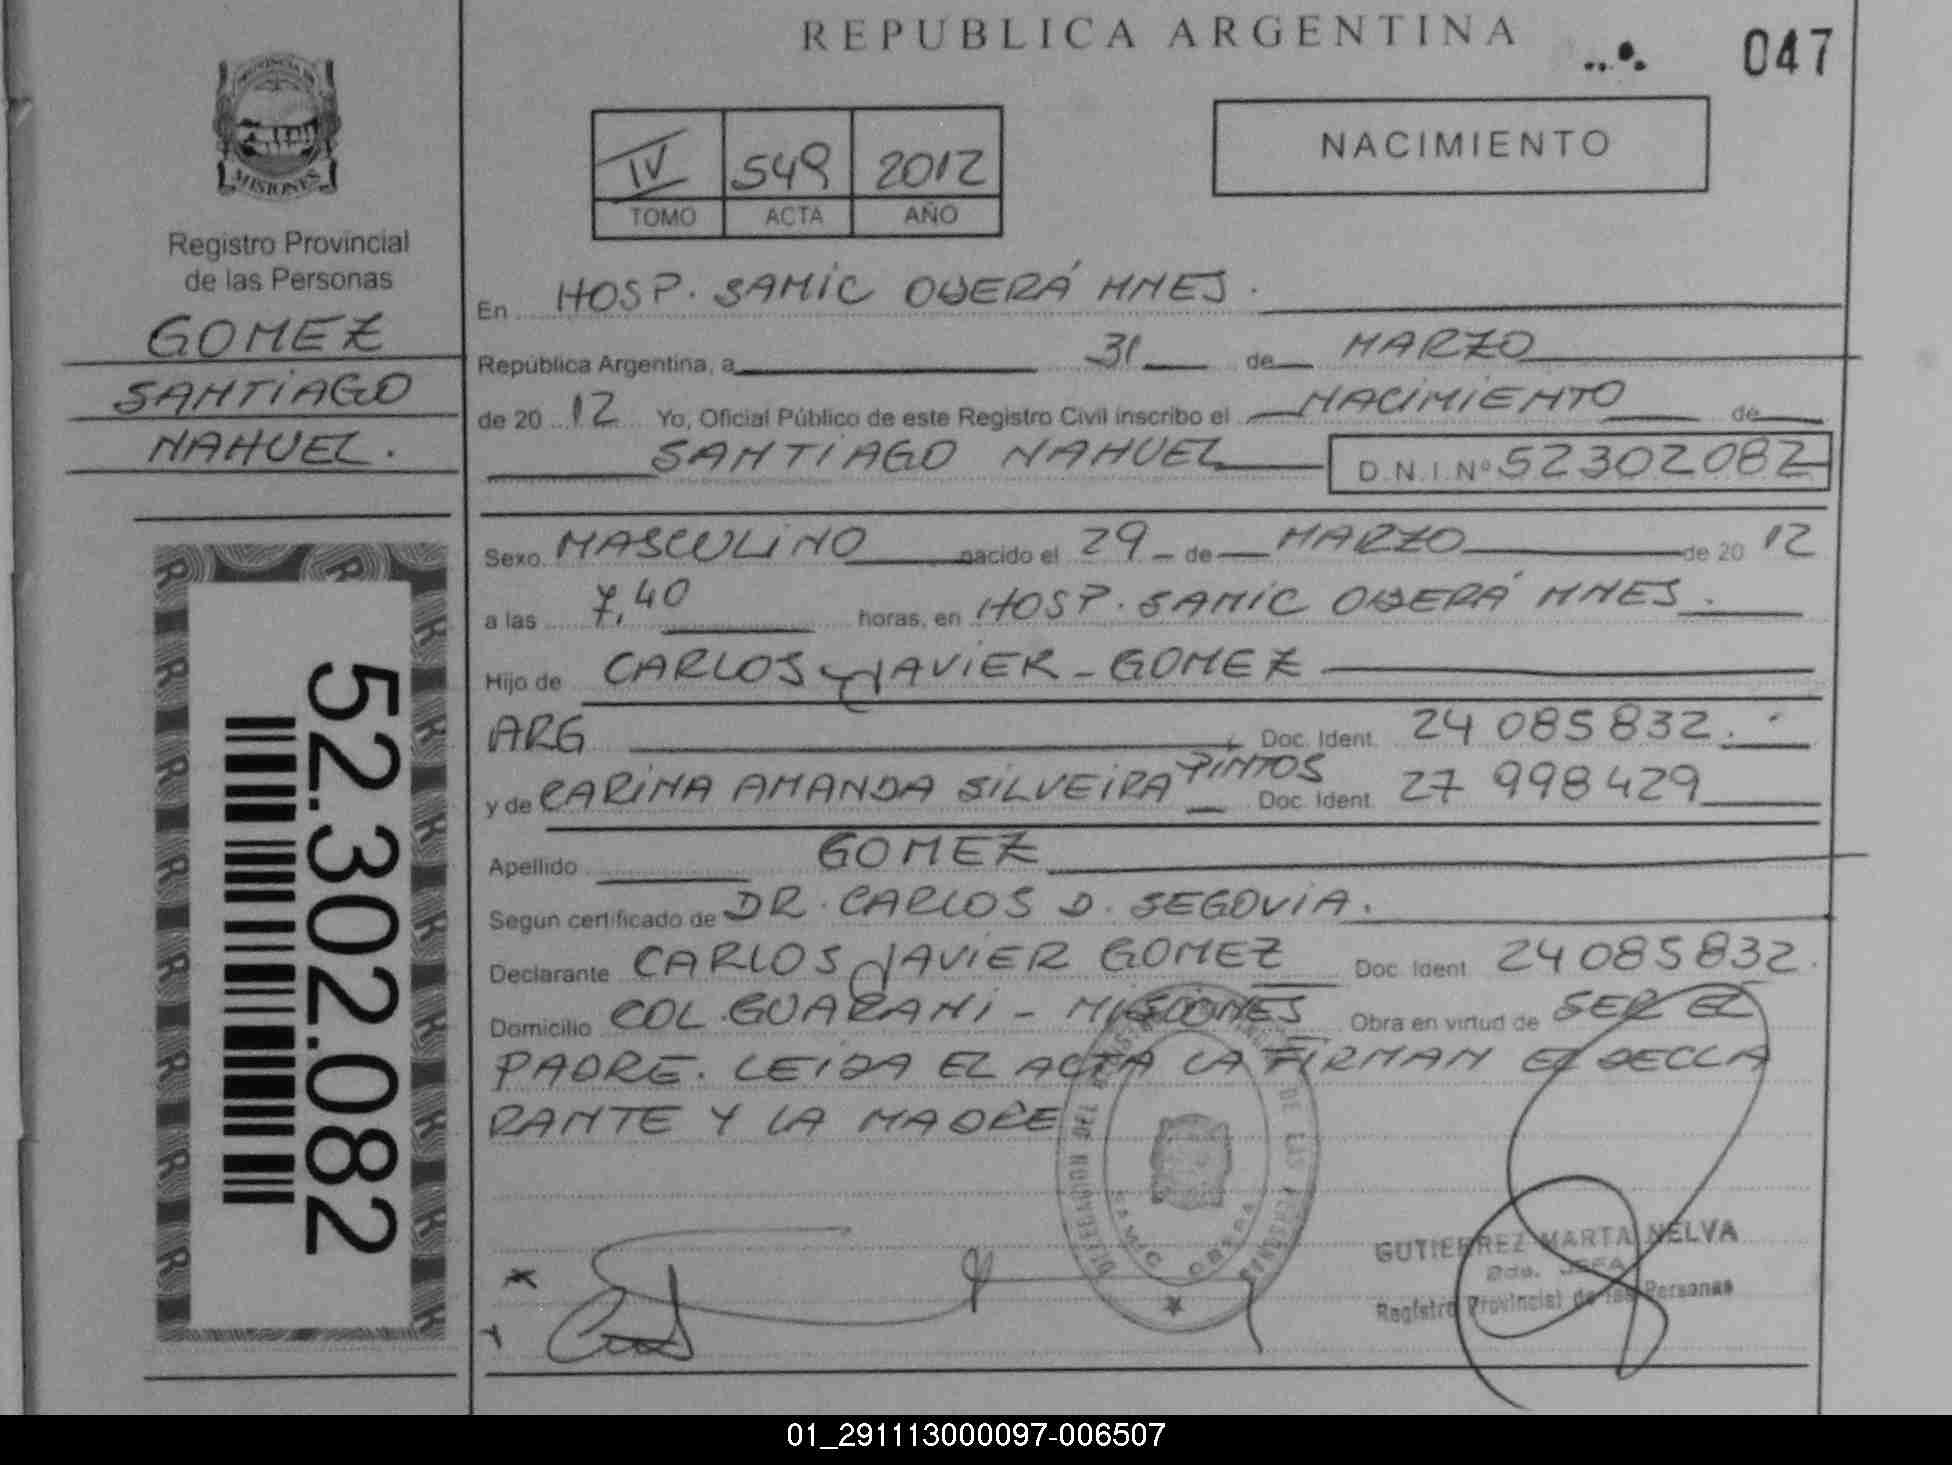 REPUBLICA ARGENTINA
047
PROVINCIA DE
MISIONES
Registro Provincial
de las Personas
GOMEZ
SANTIAGO
NAHUEL.
52.302.082
IV 549 2012
TOMO ACTA AÑO
NACIMIENTO
En HOSP. SAMIC OBERÁ MNES.
República Argentina, a 31 de MARZO
de 20 12 Yo, Oficial Público de este Registro Civil inscribo el NACIMIENTO de
SANTIAGO NAHUEL D.N.I.Nº 52302082
Sexo MASCULINO nacido el 29 de MARZO de 20 12
a las 7,40 horas, en HOSP. SAMIC OBERÁ MNES.
Hijo de CARLOS JAVIER - GOMEZ
ARG Doc. Ident. 24 085 832.
y de CARINA AMANDA SILVEIRA PINTOS Doc. Ident. 27 998 429
Apellido GOMEZ
Segun certificado de DR. CARLOS D. SEGOVIA.
Declarante CARLOS JAVIER GOMEZ Doc. Ident. 24 085 832.
Domicilio COL. GUARANI - MISIONES Obra en virtud de SER EL
PADRE. LEIDA EL ACTA LA FIRMAN EL DECLA
RANTE Y LA MADRE
SAMIC OBERA
GUTIERREZ MARTA NELVA
2da. JEFA
Registro Provincial de las Personas
01_291113000097-006507